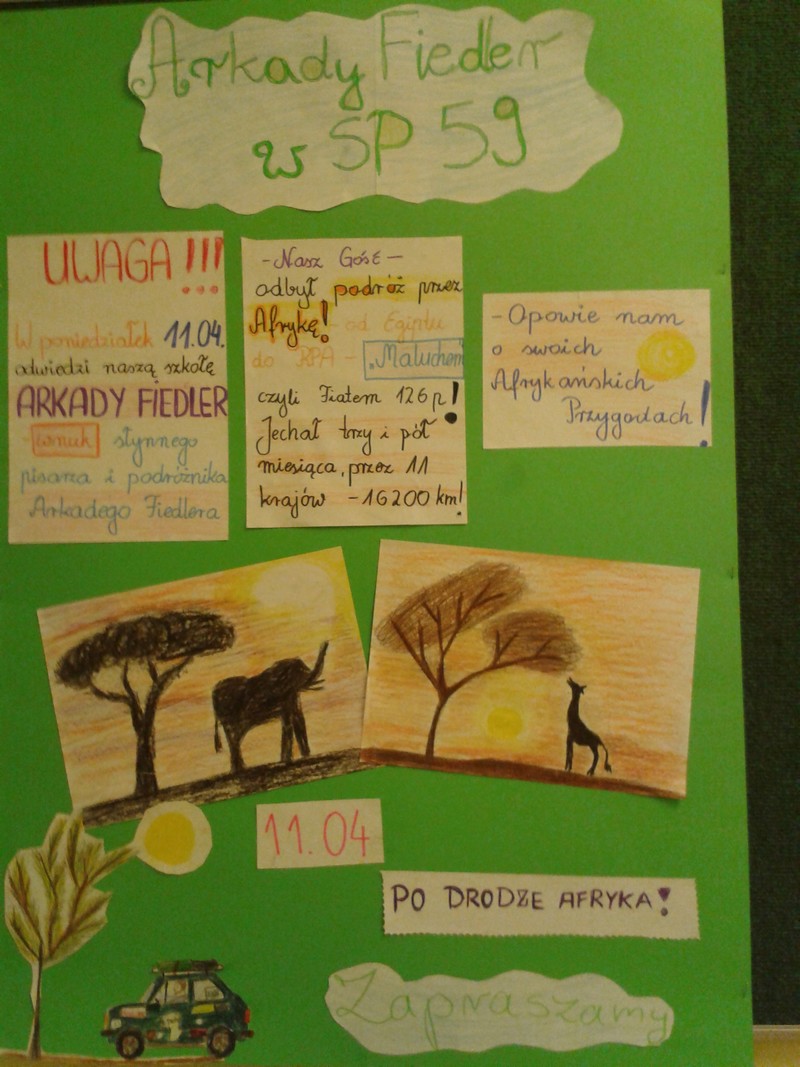 Arkady Fiedler
w SP 59
UWAGA !!!
W poniedziałek 11.04.
odwiedzi naszą szkołę
ARKADY FIEDLER
- wnuk słynnego
pisarza i podróżnika
Arkadego Fiedlera
- Nasz Gość -
odbył podróż przez
Afrykę! - od Egiptu
do RPA - "Maluchem"
czyli Fiatem 126 p!
Jechał trzy i pół
miesiąca, przez 11
krajów - 16200 km!
- Opowie nam
o swoich
Afrykańskich
Przygodach!
11.04
PO DRODZE AFRYKA!
Zapraszamy